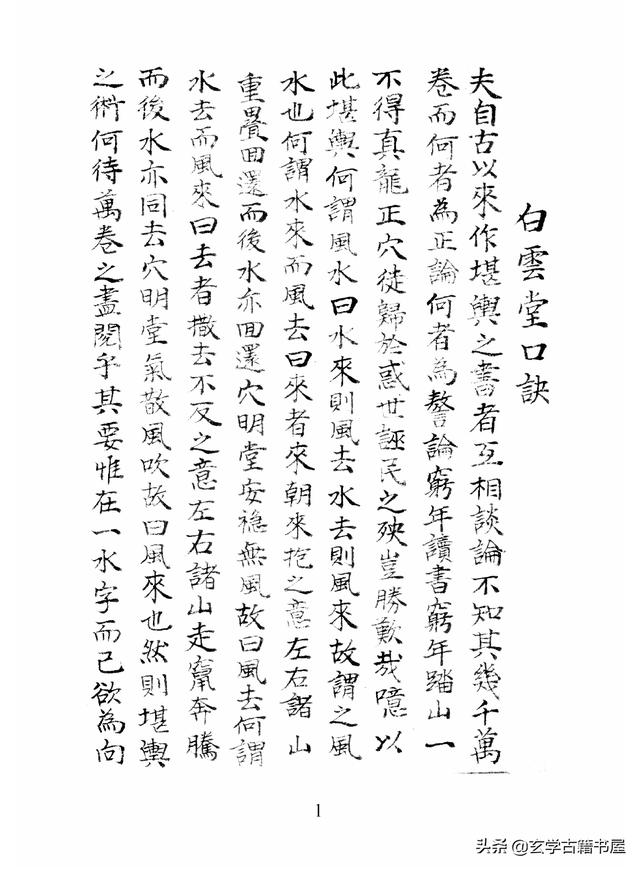 白雲堂口訣
夫自古以來作堪輿之書者互相談論不知其幾千萬
卷而何者為正論何者為謷論窮年讀書窮年踏山一
不得真龍正穴徒歸於惑世誣民之殃豈勝歎哉噫以
此堪輿何謂風水曰水來則風去水去則風來故謂之風
水也何謂水來而風去曰來者來朝來抱之意左右諸山
重疊回還而後水亦回還穴明堂安穩無風故曰風去何謂
水去而風來曰去者撒去不反之意左右諸山走竄奔騰
而後水亦同去穴明堂氣散風吹故曰風來也然則堪輿
之術何待萬卷之盡閱乎其要惟在一水字而已欲為向
1
头条@玄学古籍书屋